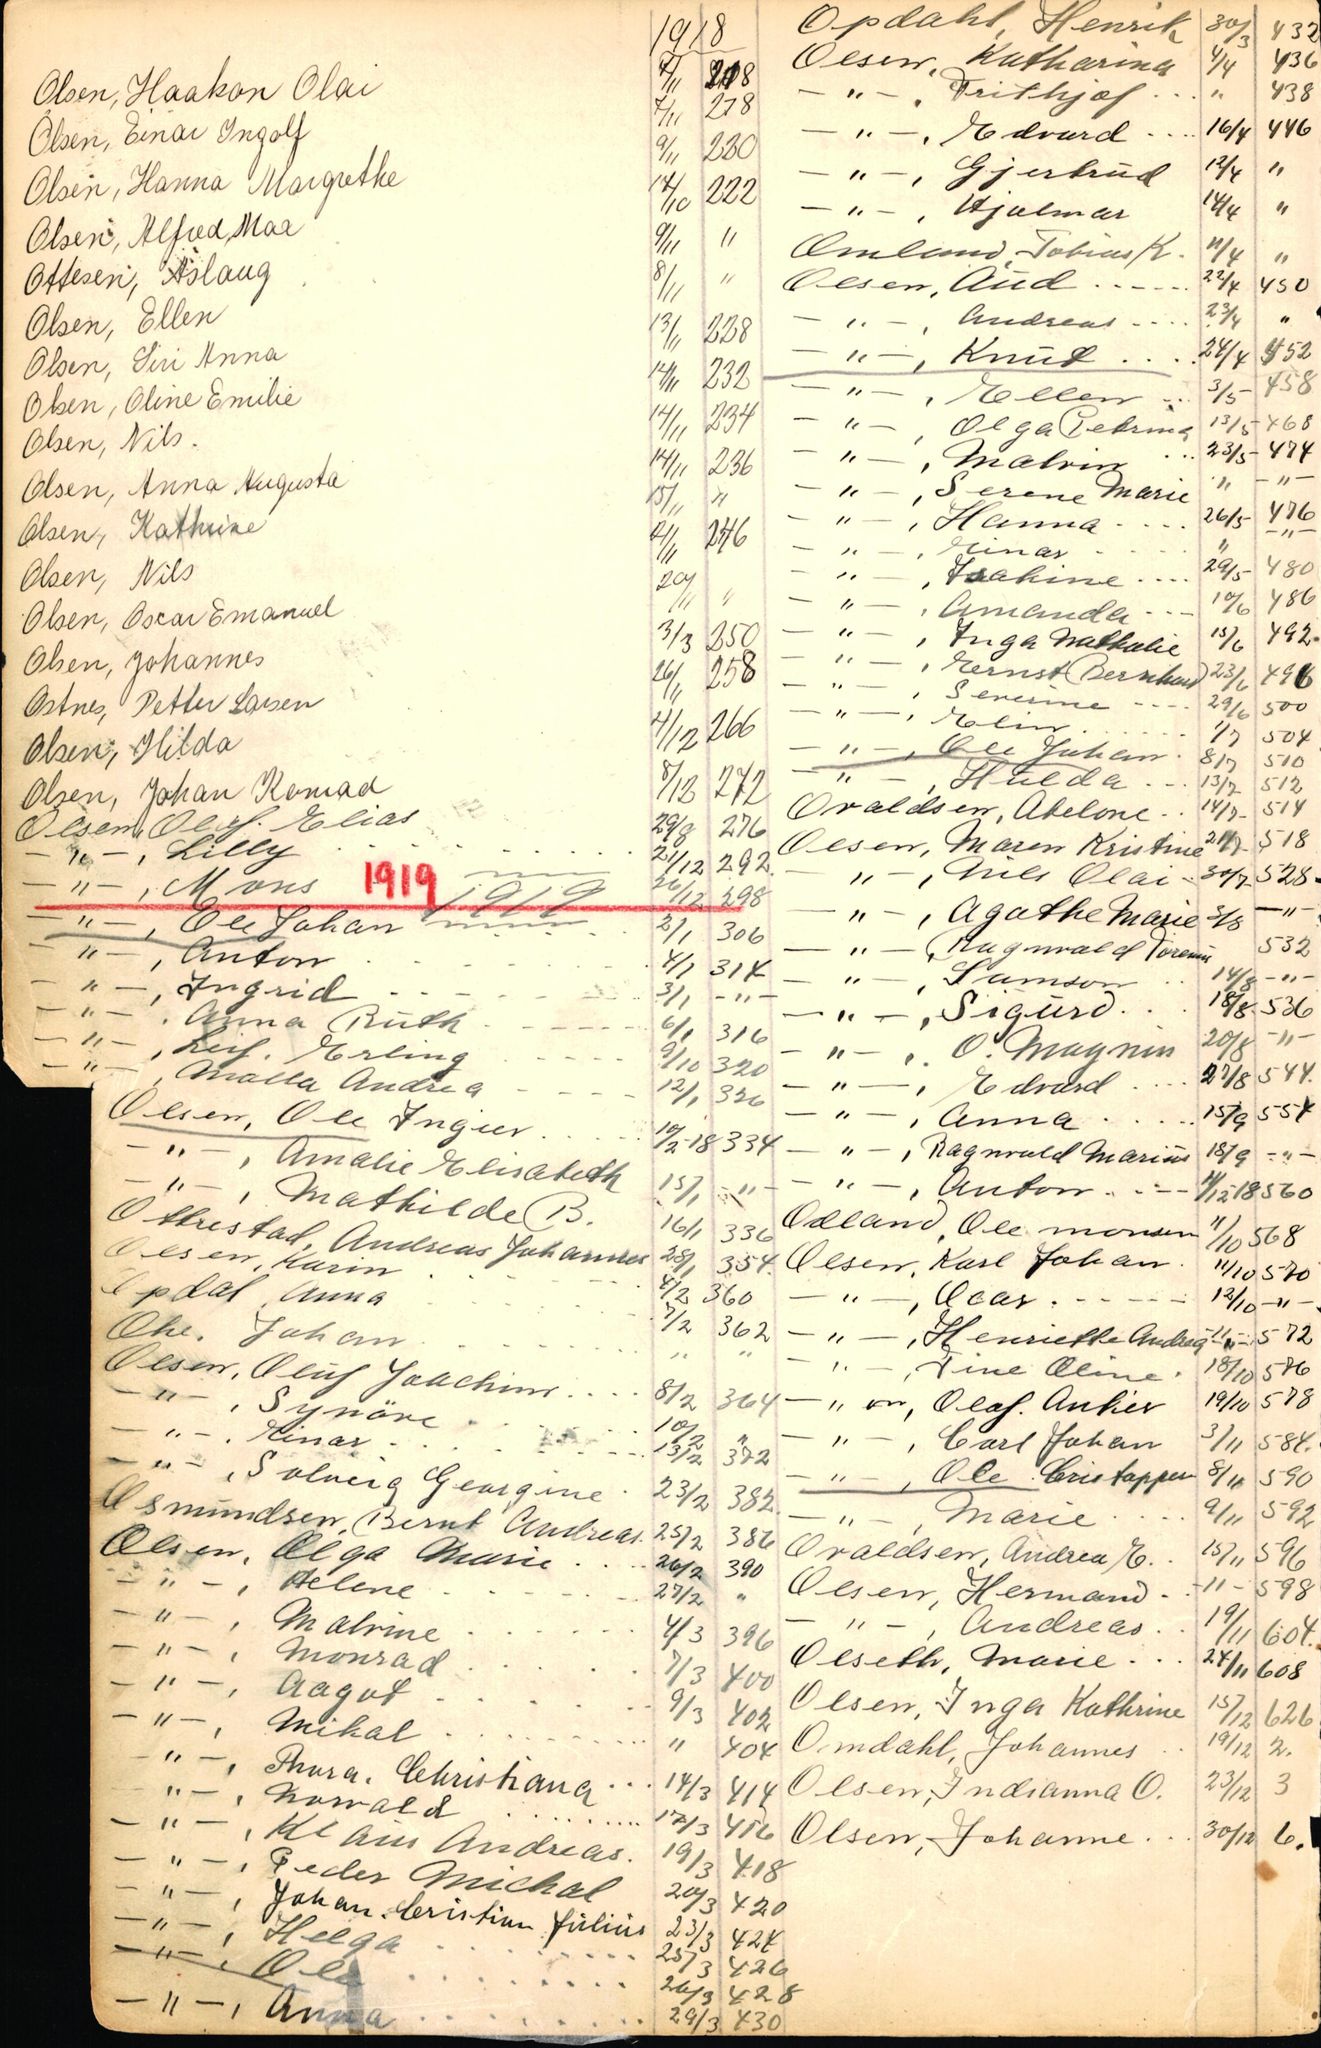 1918
Olsen, Haakon Olai 7/11 218
Olsen, Einar Ingolf 7/11 218
Olsen, Hanna Margrethe 9/11 220
Olsen, Alfred Maa 14/10 222
Ottesen, Aslaug 9/11 "
Olsen, Ellen 8/11 "
Olsen, Siri Anna 13/11 228
Olsen, Oline Emilie 12/11 232
Olsen, Nils. 14/11 234
Olsen, Anna Augusta 14/11 236
Olsen, Kathrine 15/11 "
Olsen, Nils 21/11 246
Olsen, Oscar Emanuel 20/11 "
Olsen, Johannes 3/3 250
Ostnes, Petter Larsen 26/11 258
Olsen, Hilda 4/12 266
Olsen, Johan Konrad 8/12 272
Olsen, Oluf. Elias 29/8 276
— " —, Lilly 21/12 292.
— " —, Mons 1919 1919 26/12 298
— " —, Ole Johan 2/1 306
— " —, Anton 4/1 314
— " —, Ingrid 3/1 — " —
— " —, Anna Ruth 6/1 316
— " —, Leif. Erling 9/10 320
— " —, Malla Andrea 12/1 326
Olsen, Ole Ingier 10/2-18 334
— " —, Amalie Elisabeth 15/1 — " —
— " —, Mathilde B. 16/1 336
Ottrestad, Andreas Johannes 28/1 354.
Olsen, Karin 4/2 360
Opdal, Anna 7/2 362
Ohe. Johan " "
Olsen, Oluf Joachim 8/2 364
— " —, Synöve 10/2 "
— " —. Einar 13/2 372
— " —, Solveig Georgine 23/2 382.
Osmundsen, Bernt Andreas. 25/2 386
Olsen, Olga Marie 26/2 390
— " —, Helene 27/2 "
— " —, Malvine 4/3 396
— " —, Monrad 7/3 400
— " —, Aagot 9/3 402
— " —, Mikal " 404
— " —, Thora. Christiana 14/3 414
— " —, Norvald 17/3 416
— " —, Klaus Andreas. 19/3 418
— " —, Peder Michal 20/3 420
— " —, Johan. Cristian Julius 23/3 424
— " —, Helga 25/3 426
— " —, Ole 26/3 428
— " —, Anna 29/3 430
Opdahl, Henrik 30/3 432
Olsen, Katharina 4/4 436
— " —, Frithjof " 438
— " —, Edvard 16/4 446
— " —, Gjertrud 12/4 "
— " —, Hjalmar 14/4 "
Omland, Tobias K. 11/4 "
Olsen, Aud 22/4 450
— " —, Andreas 23/4 "
— " —, Knut 24/4 452
— " —, Ellen 3/5 458
— " —, Olga Petrina 13/5 468
— " —, Malvin 23/5 474
— " —, Serene Marie " — " —
— " —, Hanna 26/5 476
— " —, Einar " — " —
— " —, Isakine 29/5 480
— " —, Amanda 10/6 486
— " —, Inga Nathalie 15/6 492.
— " —, Ernst Bernhard 23/6 496
— " —, Severine 29/6 500
— " —, Elin 1/7 504
— " —, Ole Johan 8/7 510
— " —, Hulda 13/7 512
Ovaldsen, Abelone 14/7 514
Olsen, Maren Kristine 21/7 518
— " —, Nils Olai 30/7 528.
— " —, Agathe Marie 3/8 — " —
— " —, Ragnvald 532
— " —, Samson 14/8 — " —
— " —, Sigurd. 18/8. 536
— " —, O. Magnus 20/8 — " —
— " —, Edvard 27/8 544.
— " —, Anna 15/9 554
— " —, Ragnvald Marius 18/9 — " —
— " —, Anton 11/12-18 560
Odland, Ole Monsen 11/10 568
Olsen, Karl Johan. 11/10 570
— " —, Ocar. 12/10 — " —
— " —, Henriette Andrea — " — 572
— " —, Tine Oline. 18/10 576
— " —, Olaf. Anker 19/10 578
— " —, Carl Johan 3/11 584.
— " —, Ole Cristoppen 8/11 590
— " —, Marie 9/11 592
Ovaldsen, Andrea E. 15/11 596
Olsen, Hermand — 11 — 598
— " —, Andreas 19/11 604.
Olseth, Marie 24/11 608
Olsen, Inga Kathrine 15/12 626
Omdahl, Johannes 19/12 2.
Olsen, Indianna O. 23/12 3
Olsen, Johanne 30/12 6.